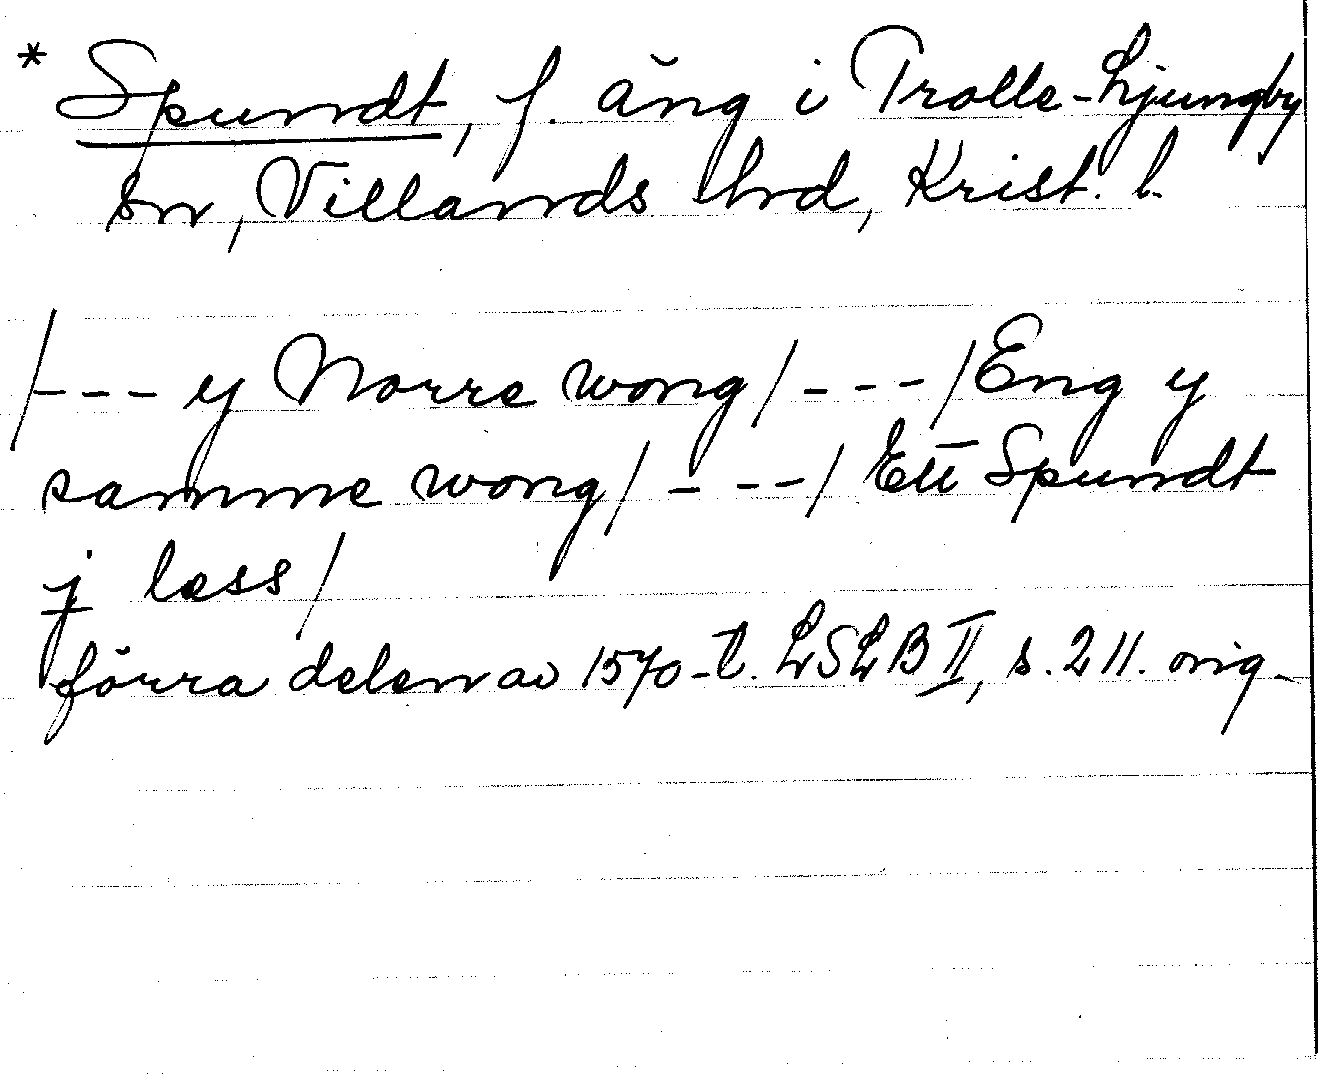 * Spundt, f. äng i Trolle-Ljungby
sn, Villands hrd, Krist. l.
/--- y Norre wong/---/Eng y
samme wong/---/Ett Spundt
j less/
förra delen av 1570-t. LSLB II, s. 211. orig.